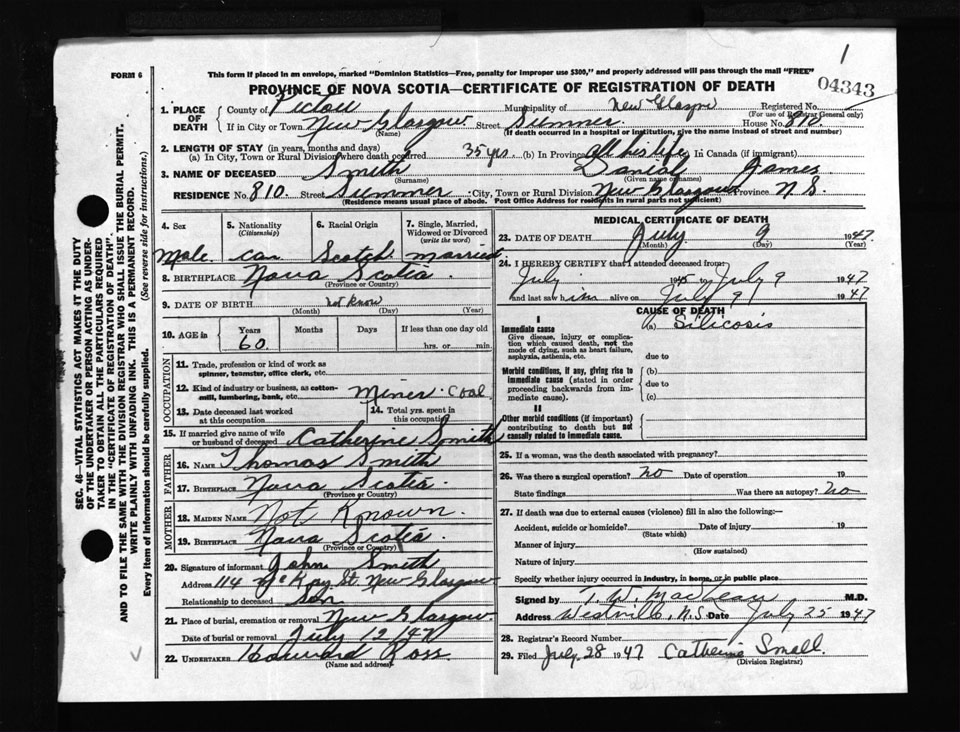 1
FORM 6
This form if placed in an envelope, marked "Dominion Statistics—Free, penalty for improper use $300," and properly addressed will pass through the mail "FREE"
04343
PROVINCE OF NOVA SCOTIA—CERTIFICATE OF REGISTRATION OF DEATH
1. PLACE OF DEATH County of Pictou Municipality of New Glasgow Registered No.
(For use of Registrar General only)
If in City or Town New Glasgow Street Summer House No. 810
(Name) (If death occurred in a hospital or institution, give the name instead of street and number)
2. LENGTH OF STAY (in years, months and days)
(a) In City, Town or Rural Division where death occurred 35 yrs. (b) In Province all his life In Canada (if immigrant)
3. NAME OF DECEASED Smith Daniel James
(Surname) (Given name or names)
RESIDENCE No. 810 Street Summer City, Town or Rural Division New Glasgow Province N.S.
(Residence means usual place of abode. Post Office Address for residents in rural parts not sufficient)
4. Sex 5. Nationality (Citizenship) 6. Racial Origin 7. Single, Married, Widowed or Divorced (write the word)
Male. Can Scotch married
8. BIRTHPLACE Nova Scotia
(Province or Country)
9. DATE OF BIRTH not know
(Month) (Day) (Year)
10. AGE in Years Months Days If less than one day old
60. hrs. or min.
OCCUPATION
11. Trade, profession or kind of work as spinner, teamster, office clerk, etc.
12. Kind of industry or business, as cotton-mill, lumbering, bank, etc. Miner Coal
13. Date deceased last worked at this occupation 14. Total yrs. spent in this occupation
15. If married give name of wife or husband of deceased Catherine Smith
FATHER
16. NAME Thomas Smith
17. BIRTHPLACE Nova Scotia
(Province or Country)
MOTHER
18. MAIDEN NAME Not Known.
19. BIRTHPLACE Nova Scotia
(Province or Country)
20. Signature of informant John Smith
Address 114 McKay St. New Glasgow
Relationship to deceased Son
21. Place of burial, cremation or removal New Glasgow.
Date of burial or removal July 12/47
22. UNDERTAKER Howard Ross
(Name and address)
MEDICAL CERTIFICATE OF DEATH
23. DATE OF DEATH July 9 1947.
(Month) (Day) (Year)
24. I HEREBY CERTIFY that I attended deceased from:
July 1945 to July 9 1947
and last saw him alive on July 9 1947
CAUSE OF DEATH
I
Immediate cause (a) Silicosis
Give disease, injury or complication which caused death, not the mode of dying, such as heart failure, asphyxia, asthenia, etc. due to
Morbid conditions, if any, giving rise to immediate cause (stated in order proceeding backwards from immediate cause). (b)
due to
(c)
II
Other morbid conditions (if important) contributing to death but not causally related to immediate cause.
25. If a woman, was the death associated with pregnancy?
26. Was there a surgical operation? no Date of operation 19
State findings Was there an autopsy? no
27. If death was due to external causes (violence) fill in also the following:—
Accident, suicide or homicide? Date of injury 19
(State which)
Manner of injury
(How sustained)
Nature of injury
Specify whether injury occurred in industry, in home, or in public place
Signed by T. W. MacLean M.D.
Address Westville, N.S. Date July 25 1947
28. Registrar's Record Number
29. Filed July 28 1947 Catherine Small.
(Division Registrar)
SEC. 46—VITAL STATISTICS ACT MAKES IT THE DUTY
OF THE UNDERTAKER OR PERSON ACTING AS UNDER-
TAKER TO OBTAIN ALL THE PARTICULARS REQUIRED
IN THE "CERTIFICATE OF REGISTRATION OF DEATH".
AND TO FILE THE SAME WITH THE DIVISION REGISTRAR WHO SHALL ISSUE THE BURIAL PERMIT.
WRITE PLAINLY WITH UNFADING INK. THIS IS A PERMANENT RECORD.
Every item of information should be carefully supplied. (See reverse side for instructions.)